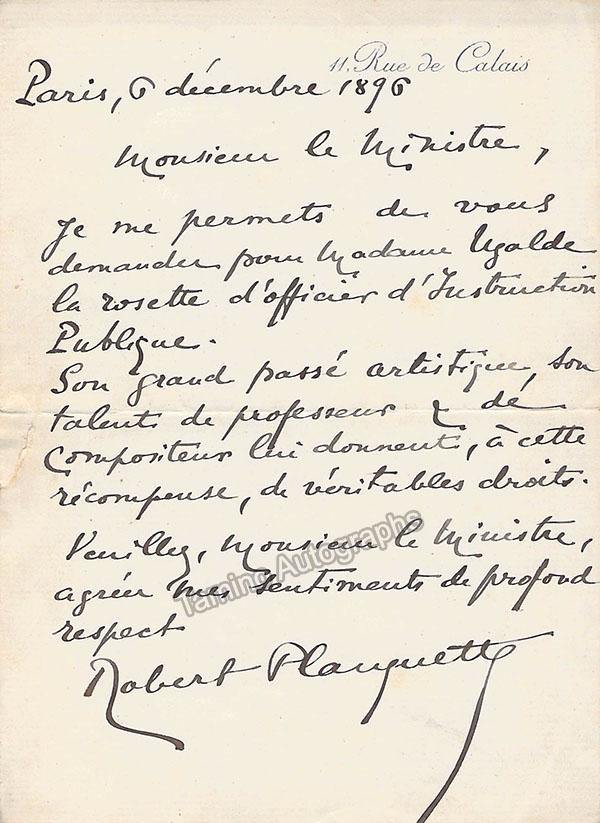 11, Rue de Calais
Paris, 6 décembre 1896
Monsieur le Ministre,
Je me permets de vous
demander pour Madame Ugalde
la rosette d'officier d'Instruction
Publique.
Son grand passé artistique, son
talent de professeur & de
compositeur lui donnent, à cette
récompense, de véritables droits.
Veuillez, Monsieur le Ministre,
agréer mes sentiments de profond
respect
Robert Planquette
Tamino Autographs